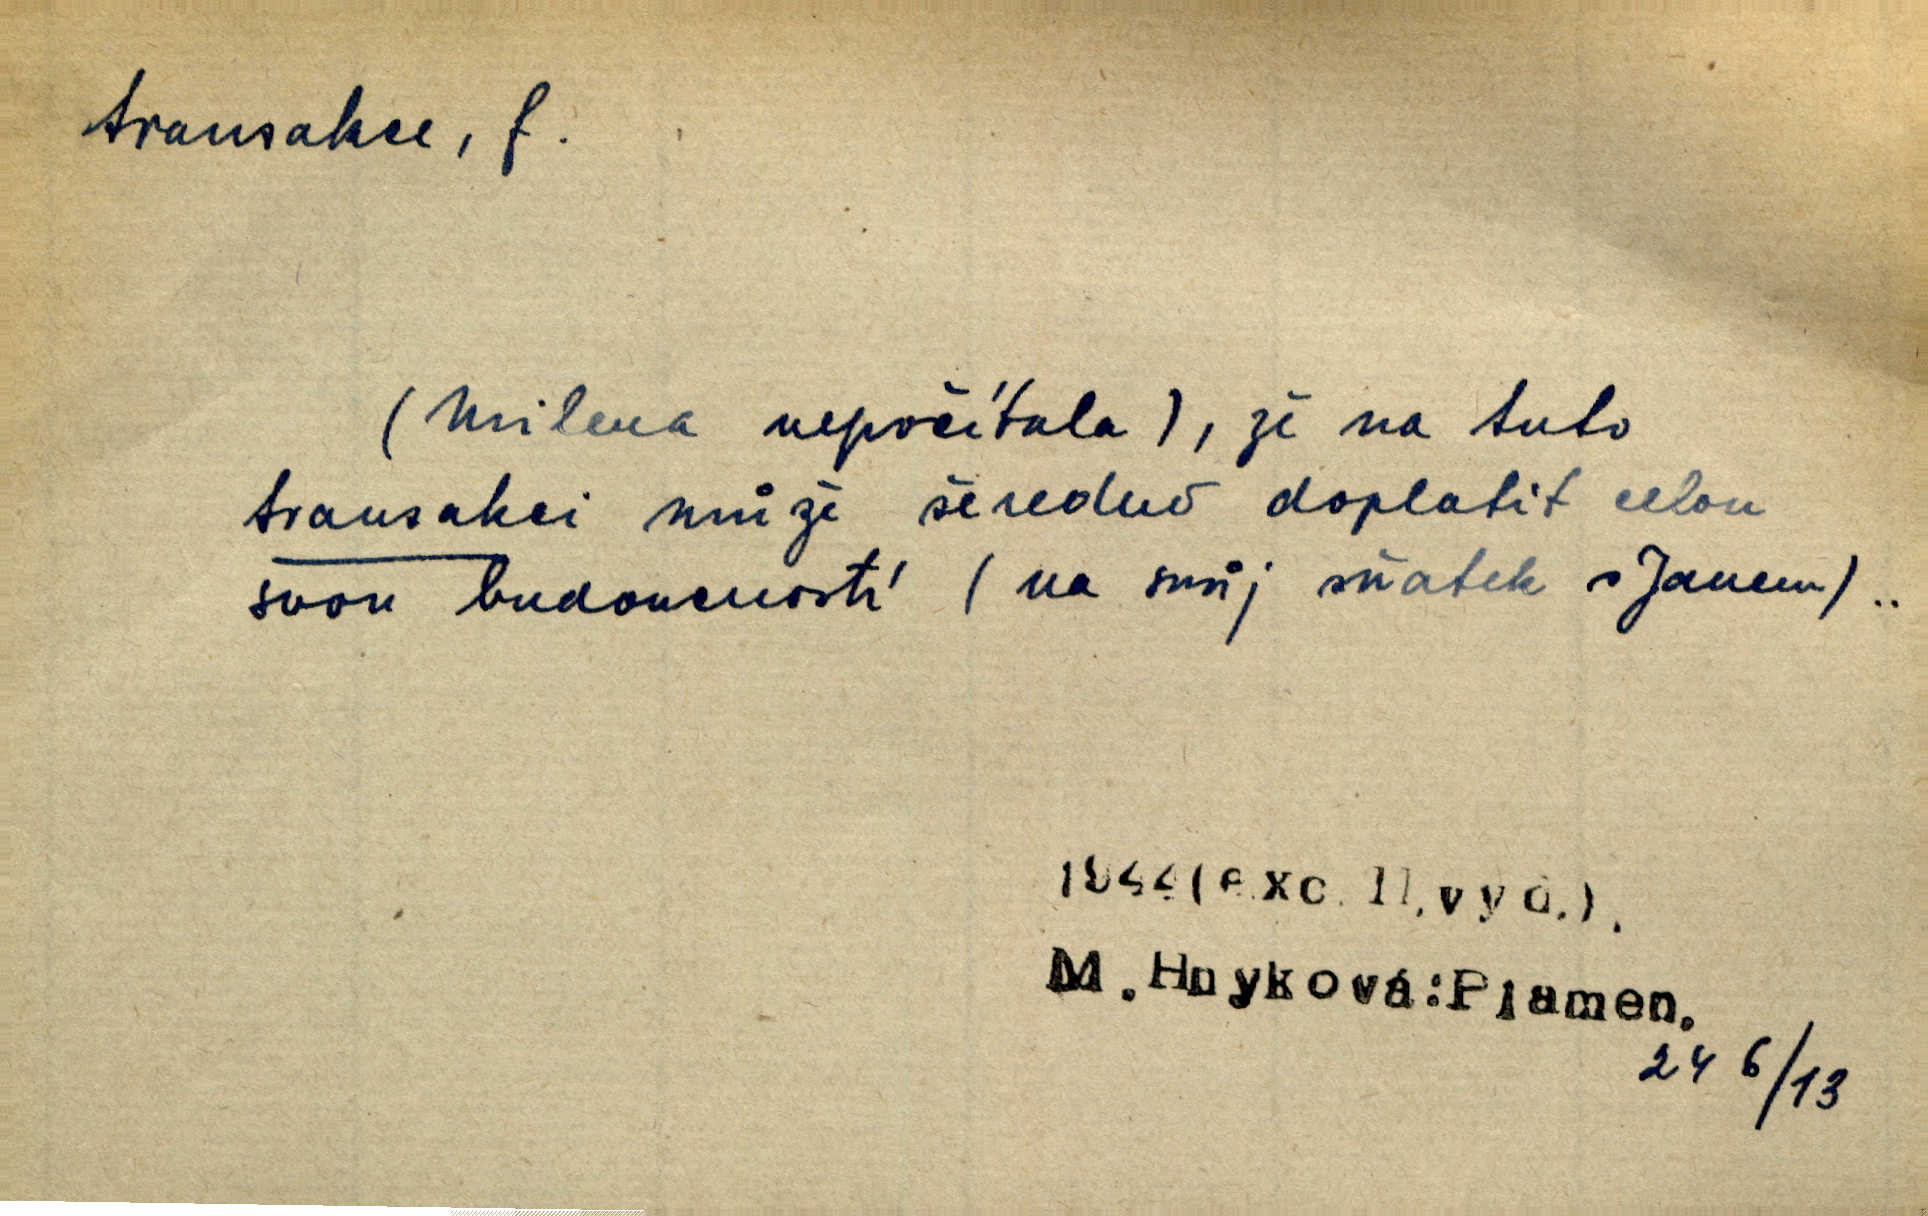 transakce, f.
(Milena nepočítala), že na tuto
transakci může šeredně doplatit celou
svou budoucností (na svůj sňatek s Janem)..
1944(exc. II.vyd.).
M.Hnyková:Plamen.
246/13